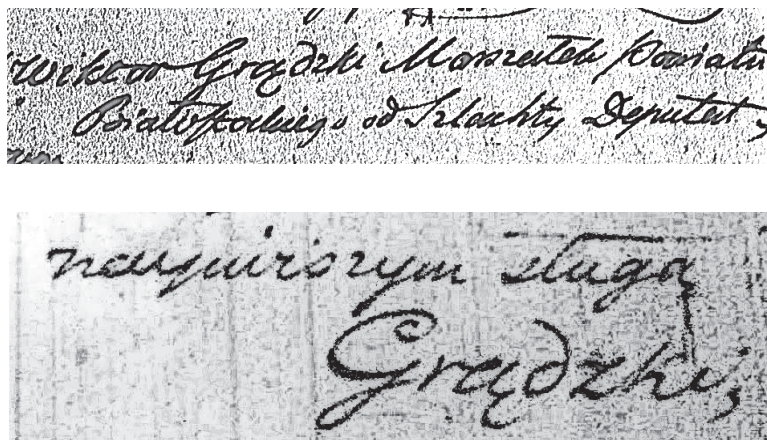 Wiktor Grądzki Marszałek Powiatu
Białostockiego od Szlachty Deputat
nayniższym sługą
Grądzki,